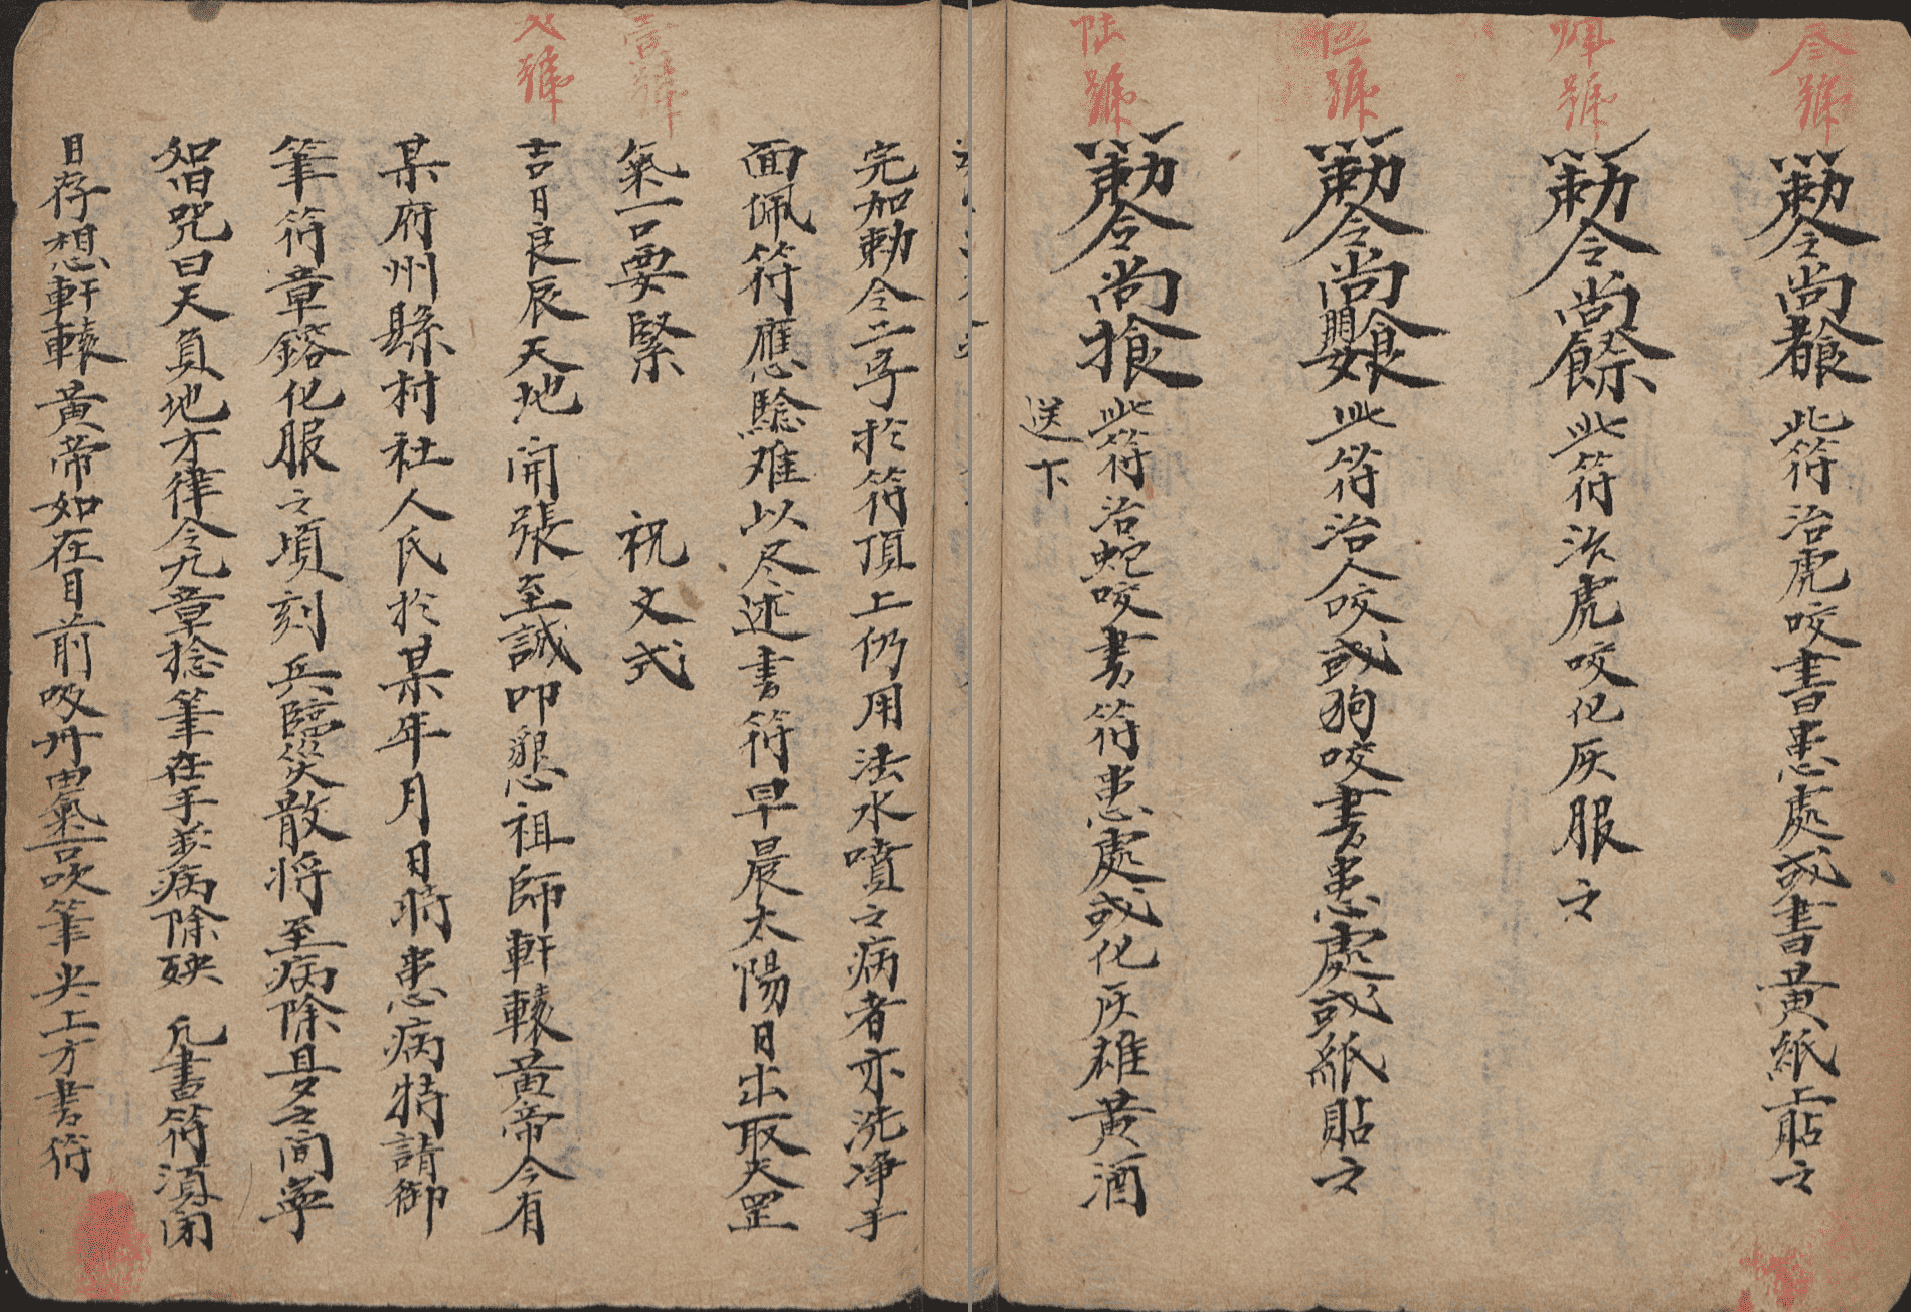 叁號
勅令尚 此符治虎咬書患處或書黃紙上貼之
肆號
勅令尚 此符治虎咬化灰服之
伍號
勅令尚 此符治人咬或狗咬書患處或紙貼之
陆號
勅令尚 此符治蛇咬書符患處或化灰雄黃酒
送下
完加勅令二字於符頂上仍用法水噴之病者亦洗净手
面佩符應驗难以尽述書符早晨太陽日出取天罡
氣一口要緊 祝文式
號
吉日良辰天地開張至誠叩懇祖師軒轅黃帝今有
某府州縣村社人氏於某年月日時患病特請御
筆符章鎔化服之頃刻兵臨災散将至病除旦夕之间寧
咒曰天負地方律令九章捻筆在手萬病除殃 凡書符須闭
目存想軒轅黃帝如在目前吸丹田氣一口吹筆尖上方書符